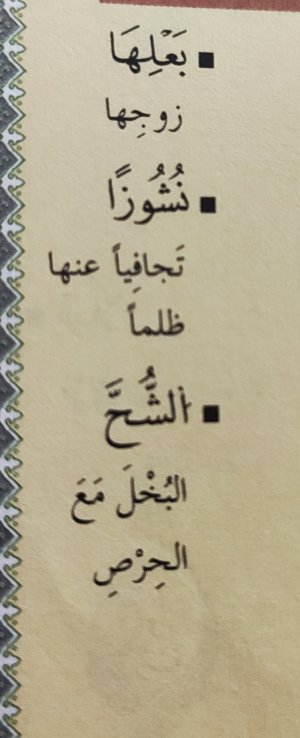 ▪ بَعْلِهَا
زوجِها
▪ نُشُوزًا
تَجافِياً عنها
ظلماً
▪ الشُّحَّ
البُخْلَ مَعَ
الحِرْصِ